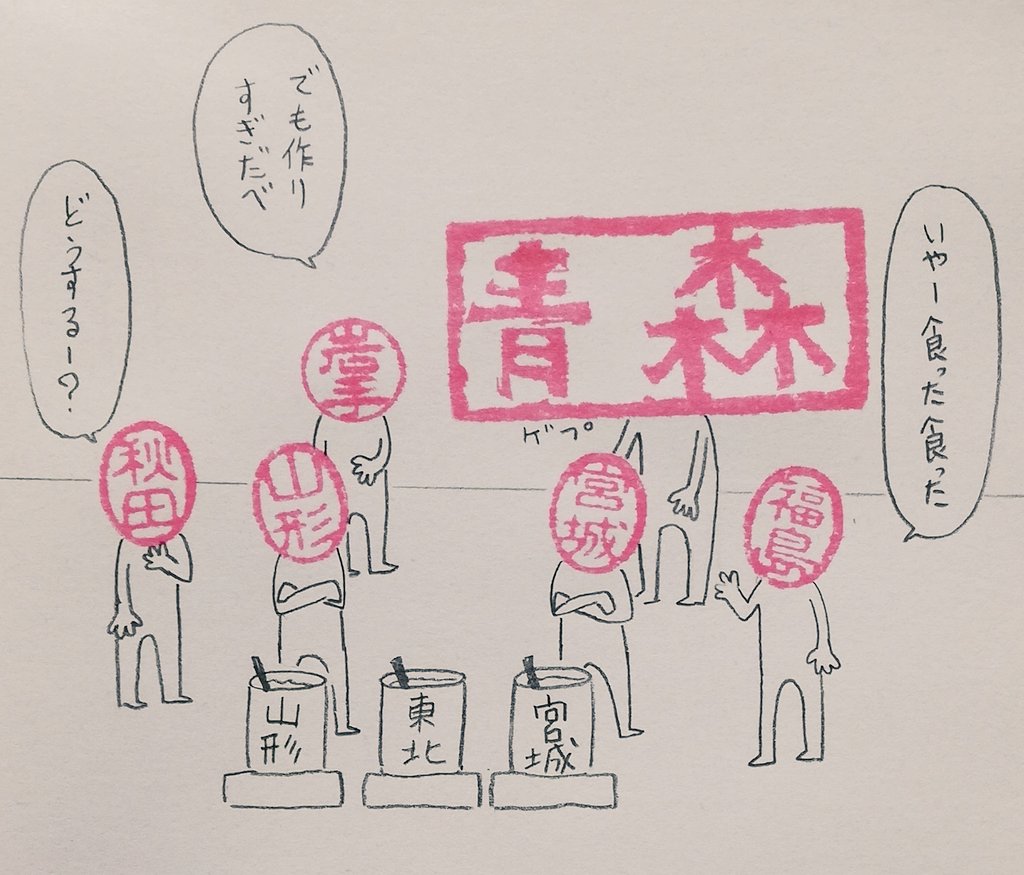 いやー食った食った
でも作り
すぎだべ
どうするー?
青森
ゲプ
秋田
山形
宮城
福島
山形
東北
宮城